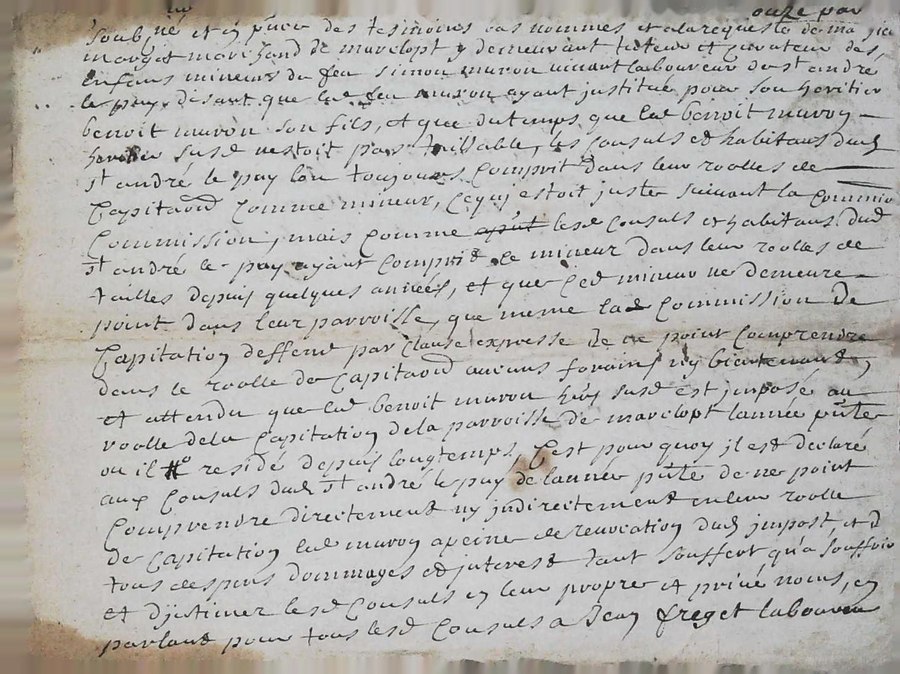 onze par
Soubné et en pnce des tesmoins bas nommes et a la requeste de
margot marchand de marclopt y demeurant tuteur et curateur des
enfans mineurs du feu Simon muron vivant laboureur de st andré
le puy, disant que led feu muron ayant institué pour son heritier
benoit muron son fils, et que du temps que led benoit muron
heritier susd nestoit pas taillable, les Consuls et habitans dud
st andré le puy lon toujours Comprit dans leur roolles de
Capitaon Comme mineur, Cequi estoit juste suivant la Commission
Commission, mais Comme lesd Consuls et habitans dud
st andré le puy ayant Comprit Ce mineur dans leur roolles de
tailles depuis quelques années, et que Ced mineur ne demeure
point dans leur parroisse, que meme lad Commission de
Capitation deffend par Clause expresse de ne point Comprendre
dans le roolle de Capitaon aucuns forains ny bientenands,
et attendu que led benoit muron hers susd est imposé au
roolle de la Capitation de la parroisse de marclopt lannée pnte
ou il residé depuis longtemps, C'est pourquoy il est declaré
aux Consuls dud st andré le puy de lannee pnte de ne point
Comprendre directement ny indirectement en leur roolle
de Capitation led muron a peine de revocation dud impost, et d
tous despens dommages et interest tant souffert qu'a souffrir
et d'jntimer lesd Consuls en leur propre et privé noms, en
parland pour tous lesd Consuls a Jean freget laboureur